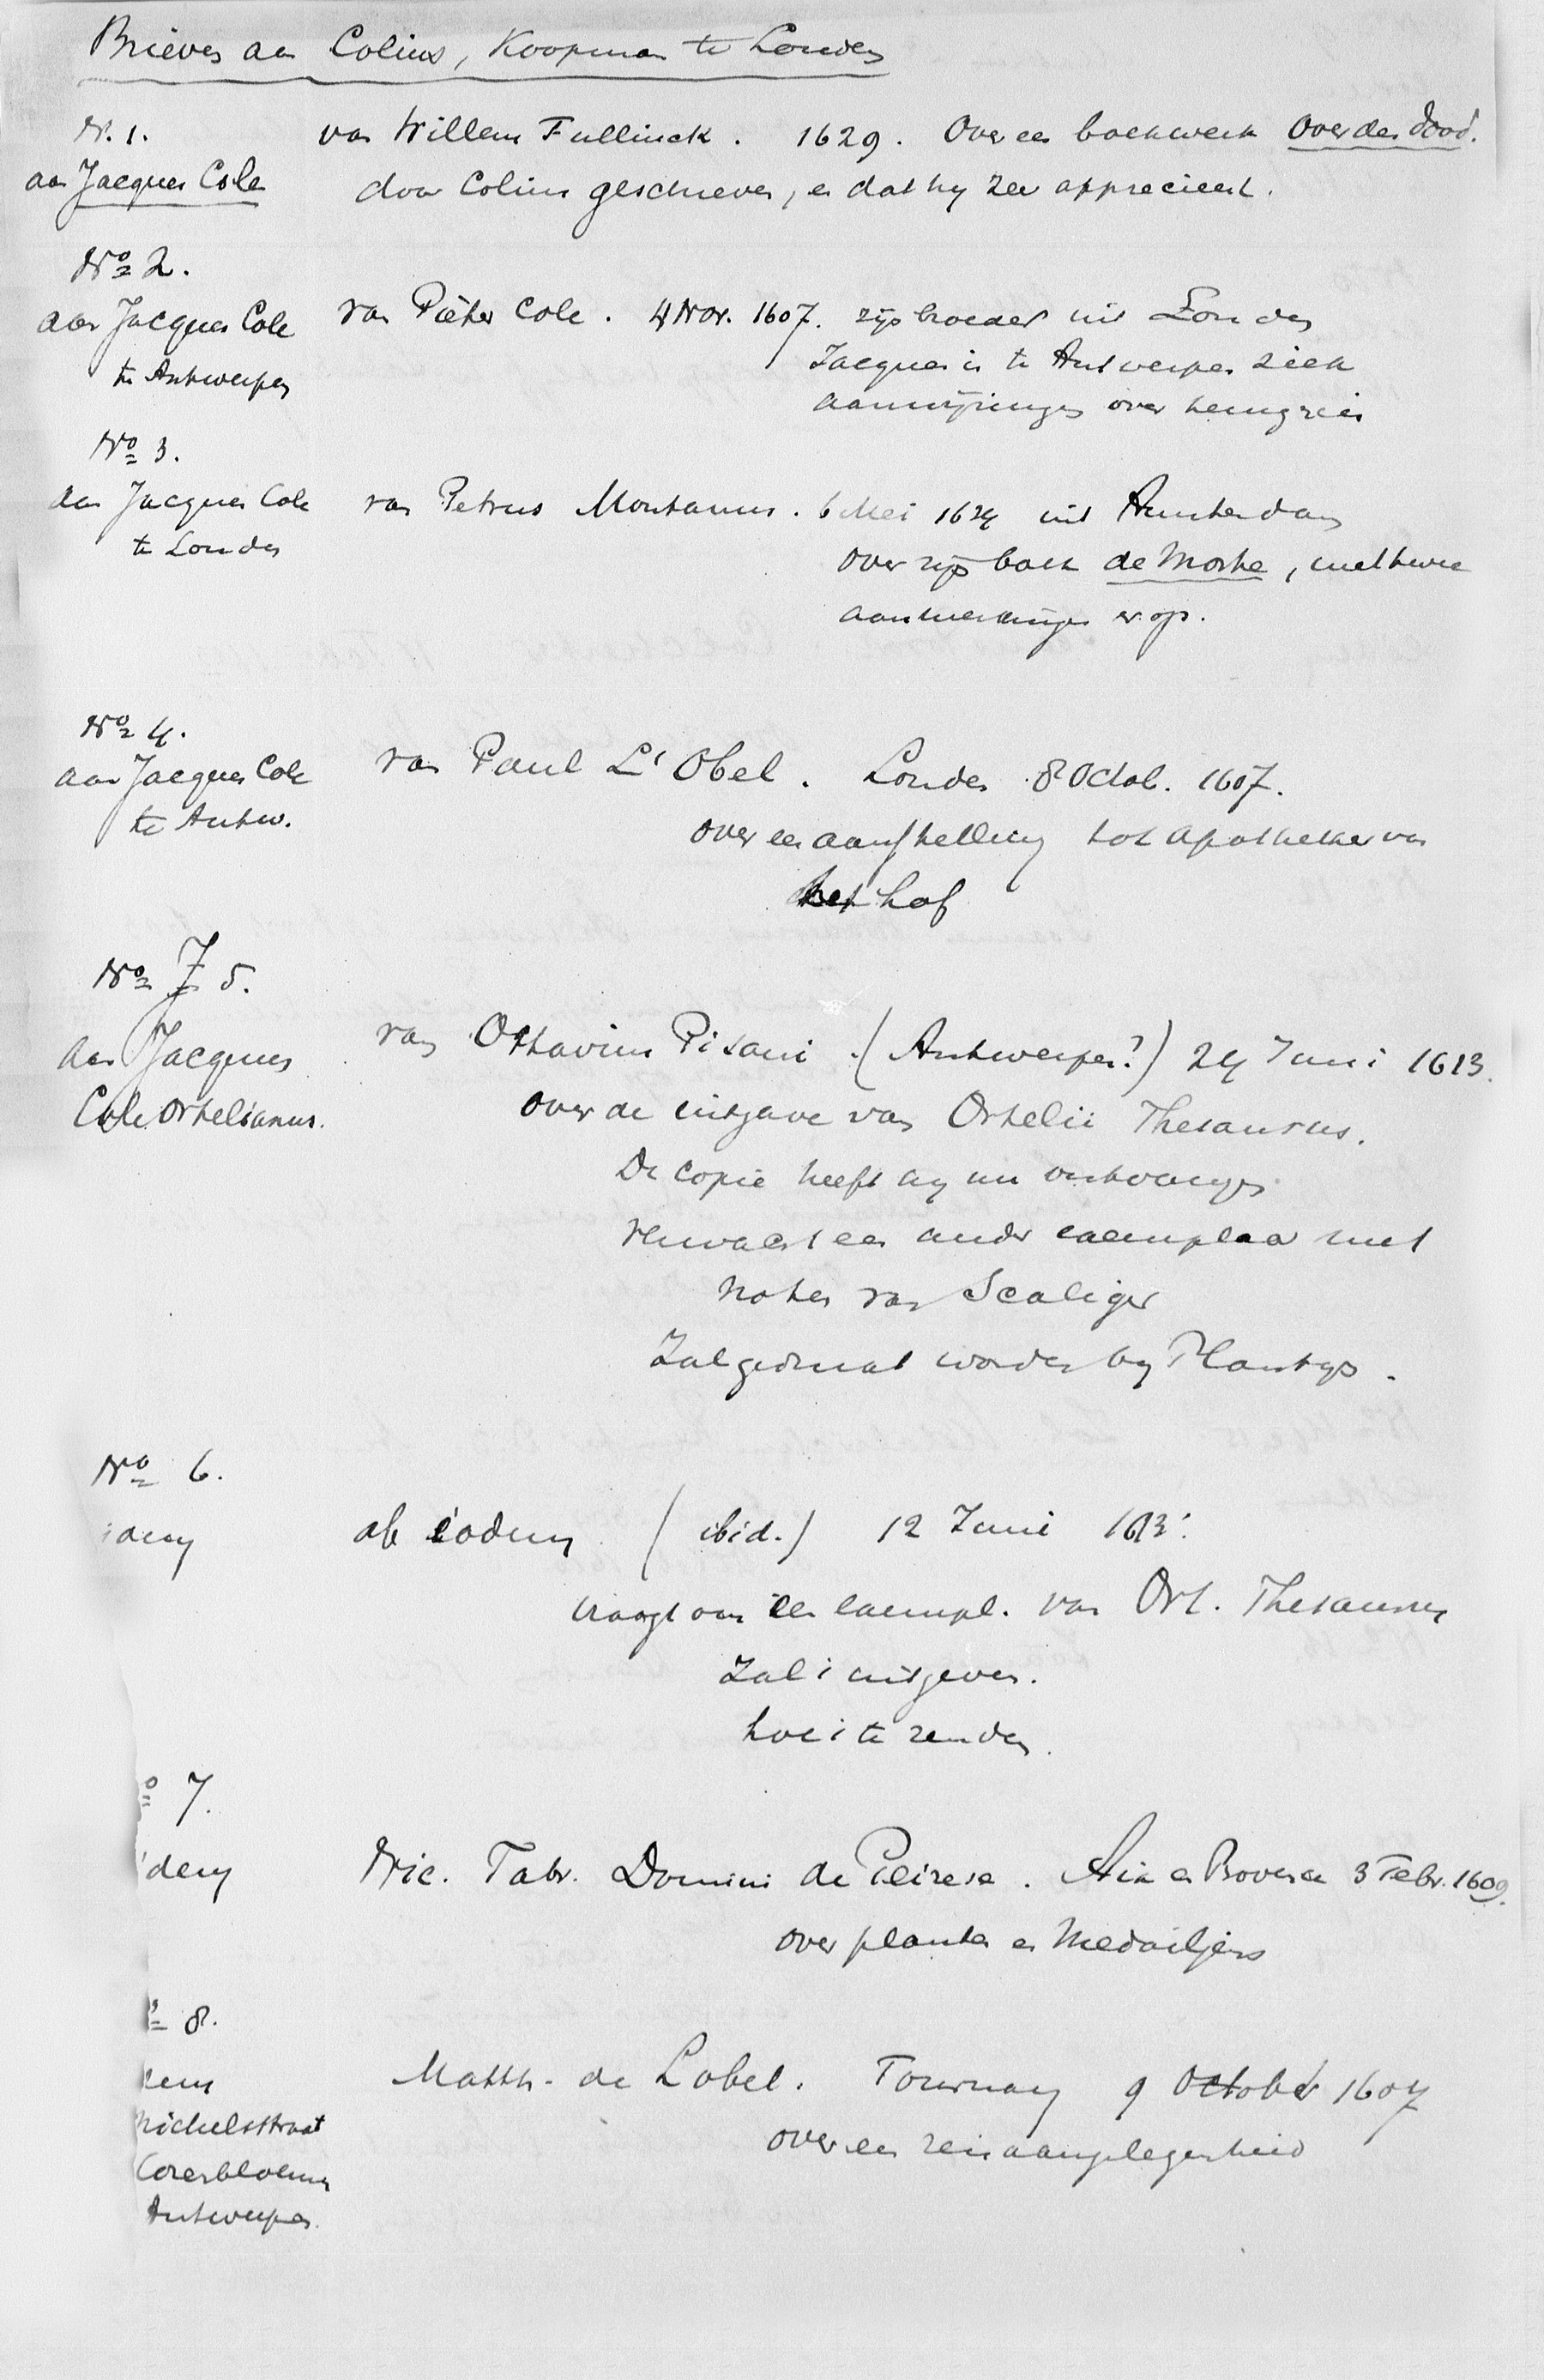 Brieven aan Colius, Koopman te Londen
N. 1. van Willem Fullinck. 1629. Over een boekwerk Over den dood.
aan Jacques Cole door Colius geschreven, en dat hy zeer apprecieert.
No 2.
aan Jacques Cole van Pieter Cole. 4 Nov. 1607. zijn broeder uit Londen
te Antwerpen Jacques is te Antwerpen ziek
aanwijzingen over
No 3.
aan Jacques Cole van Petrus Montanus. 6 Mei 1624 uit Amsterdam
te Londen over zijn boek de Morte, met
aanmerkingen er op.
No 4.
aan Jacques Cole van Paul L'Obel. Londen 8 Octob. 1607.
te Antw. over een aanstelling tot apotheker van
het hof
No 5.
aan Jacques van Ottavius Pisani (Antwerpen?) 24 Juni 1613.
Cole Ortelianus. over de uitgave van Ortelii Thesaurus.
De copie heeft hy nu ontvangen
verwacht een ander exemplaar met
noten van Scaliger
Zal gedrukt worden by Plantijn.
No 6.
idem ab eodem (ibid.) 12 Juni 1613.
vraagt om een exempl. van Ort. Thesaurus
Zal 't uitgeven.
hoe 't te zenden.
o 7.
idem Nic. Fabr. Domini de Peiresc. Aix en Provence 3 Febr. 1609.
over planten en Medailjens
8.
dem Matth. de Lobel. Tournay 9 October 1607
Michelsstraat over een reisaangelegenheid
Corenbloem
Antwerpen.